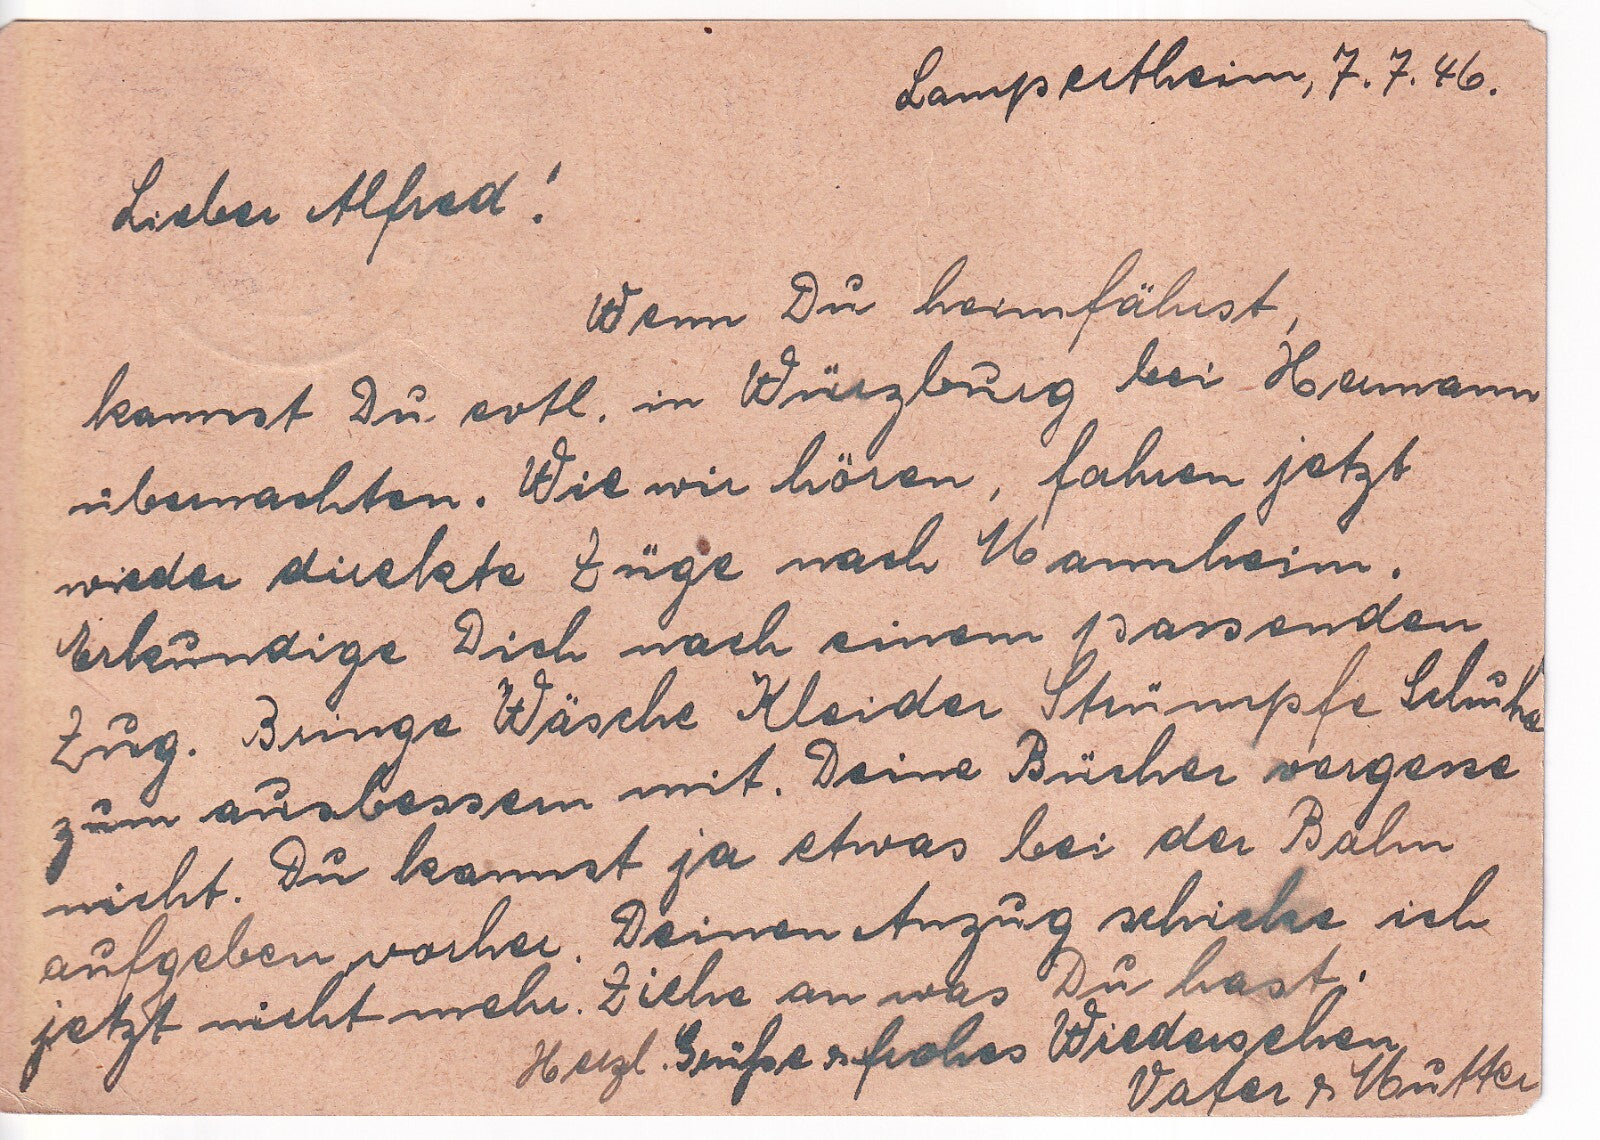 Lampertheim, 7.7.46.
Lieber Alfred!
Wenn Du heimfährst,
kannst Du evtl. in Würzburg bei Hermann
übernachten. Wie wir hören, fahren jetzt
wieder direkte Züge nach Mannheim.
Erkundige Dich nach einem passenden
Zug. Bringe Wäsche Kleider Strümpfe Schuhe
zum ausbessern mit. Deine Bücher vergesse
nicht. Du kannst ja etwas bei der Bahn
aufgeben vorher. Deinen Anzug schicke ich
jetzt nicht mehr. Ziehe an was Du hast.
Herzl. Grüße & frohes Wiedersehen
Vater & Mutter